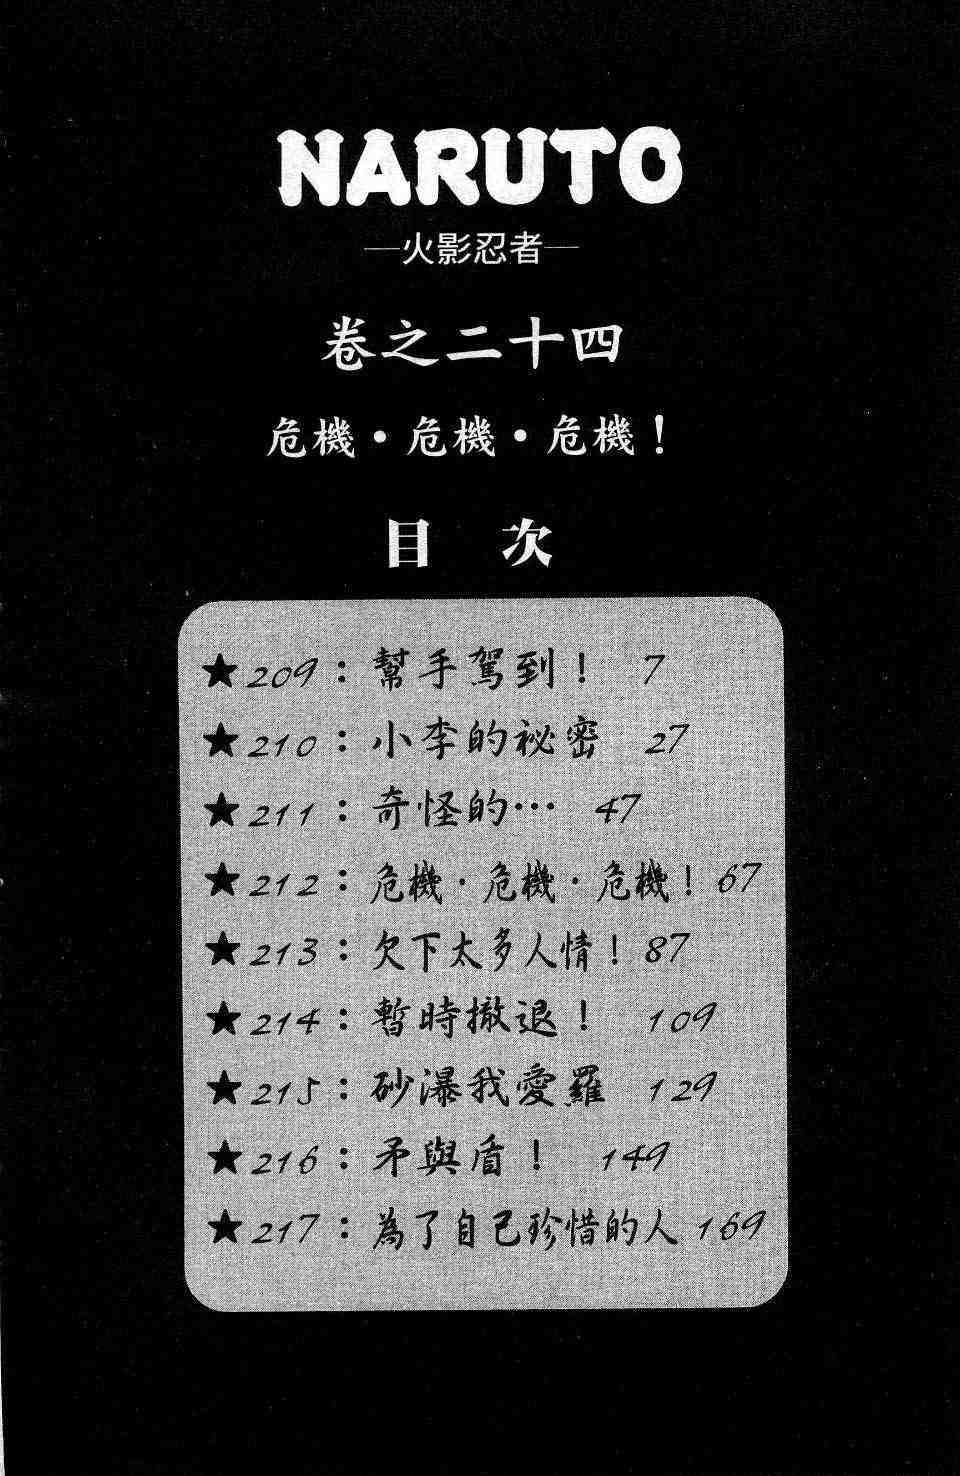 NARUTO
—火影忍者—
卷之二十四
危機・危機・危機！
目 次
★209：幫手駕到！ 7
★210：小李的祕密 27
★211：奇怪的… 47
★212：危機・危機・危機！ 67
★213：欠下太多人情！ 87
★214：暫時撤退！ 109
★215：砂瀑我愛羅 129
★216：矛與盾！ 149
★217：為了自己珍惜的人 169